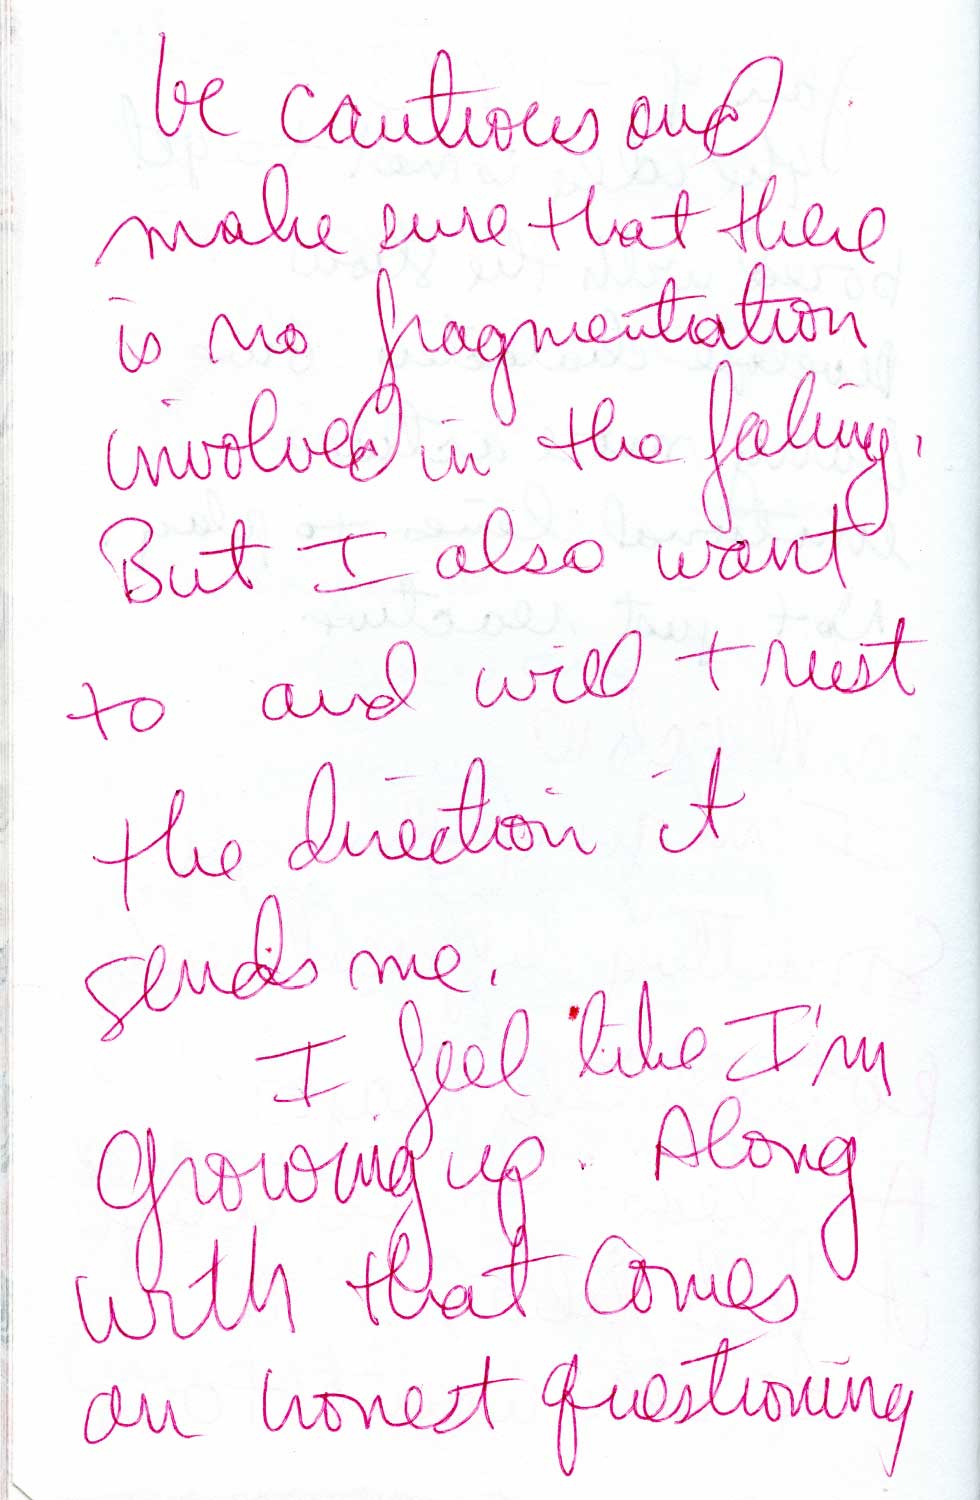 be cautious and
make sure that there
is no fragmentation
involved in the feeling.
But I also want
to and will trust
the direction it
sends me.
I feel like I'm
Growing up. Along
with that comes
an honest questioning